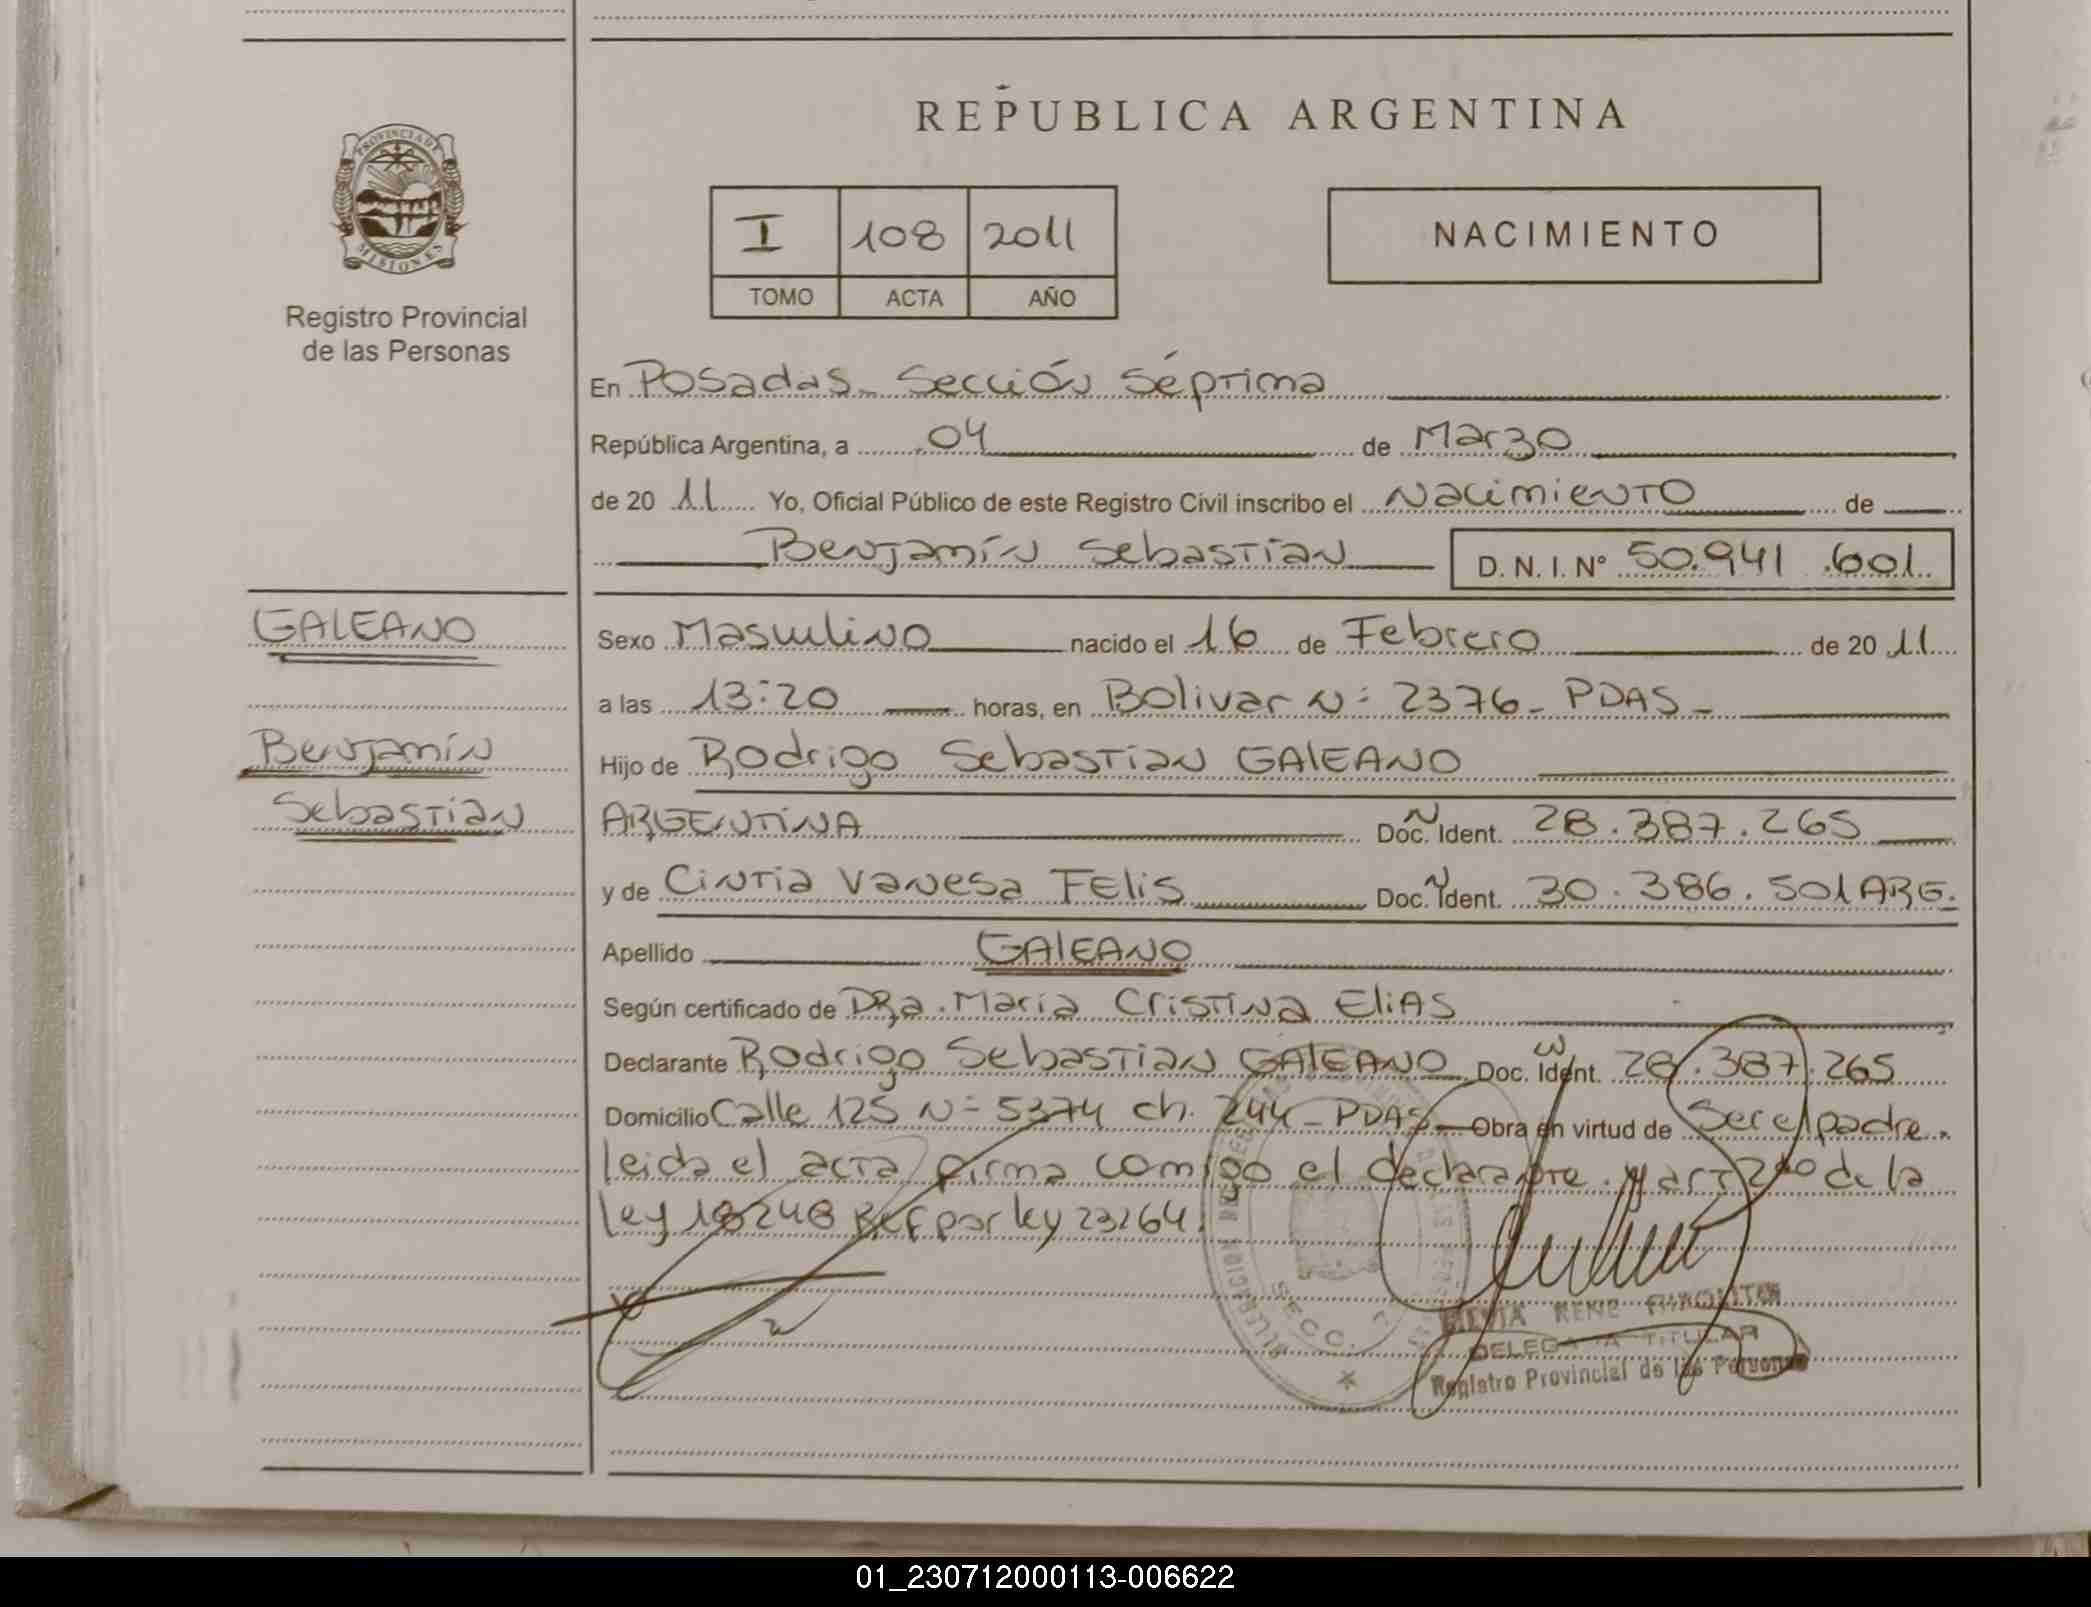 REPUBLICA ARGENTINA
PROVINCIA DE
MISIONES
Registro Provincial
de las Personas
I 108 2011
TOMO ACTA AÑO
NACIMIENTO
En Posadas - Sección Séptima
República Argentina, a 04 de Marzo
de 20 11 Yo, Oficial Público de este Registro Civil inscribo el Nacimiento de
Benjamín Sebastián D. N. I. Nº 50.941.601
GALEANO
Benjamín
Sebastián
Sexo Masculino nacido el 16 de Febrero de 20 11
a las 13:20 horas, en Bolivar Nº 2376 - PDAS -
Hijo de Rodrigo Sebastián GALEANO
ARGENTINA Doc. Ident. 28.387.265
y de Cintia Vanesa FELIS Doc. Ident. 30.386.501 ARG.
Apellido GALEANO
Según certificado de DRa. María Cristina ELIAS
Declarante Rodrigo Sebastián GALEANO Doc. Ident. 28.387.265
Domicilio Calle 125 Nº 5374 ch. 244 - PDAS - Obra en virtud de Ser el padre.
leida el acta firma conmigo el declarante. y art 2do de la
ley 18248 REF por ley 23264.
SECC. 7
RENE
DELEGADA TITULAR
Registro Provincial de las Personas
01_230712000113-006622